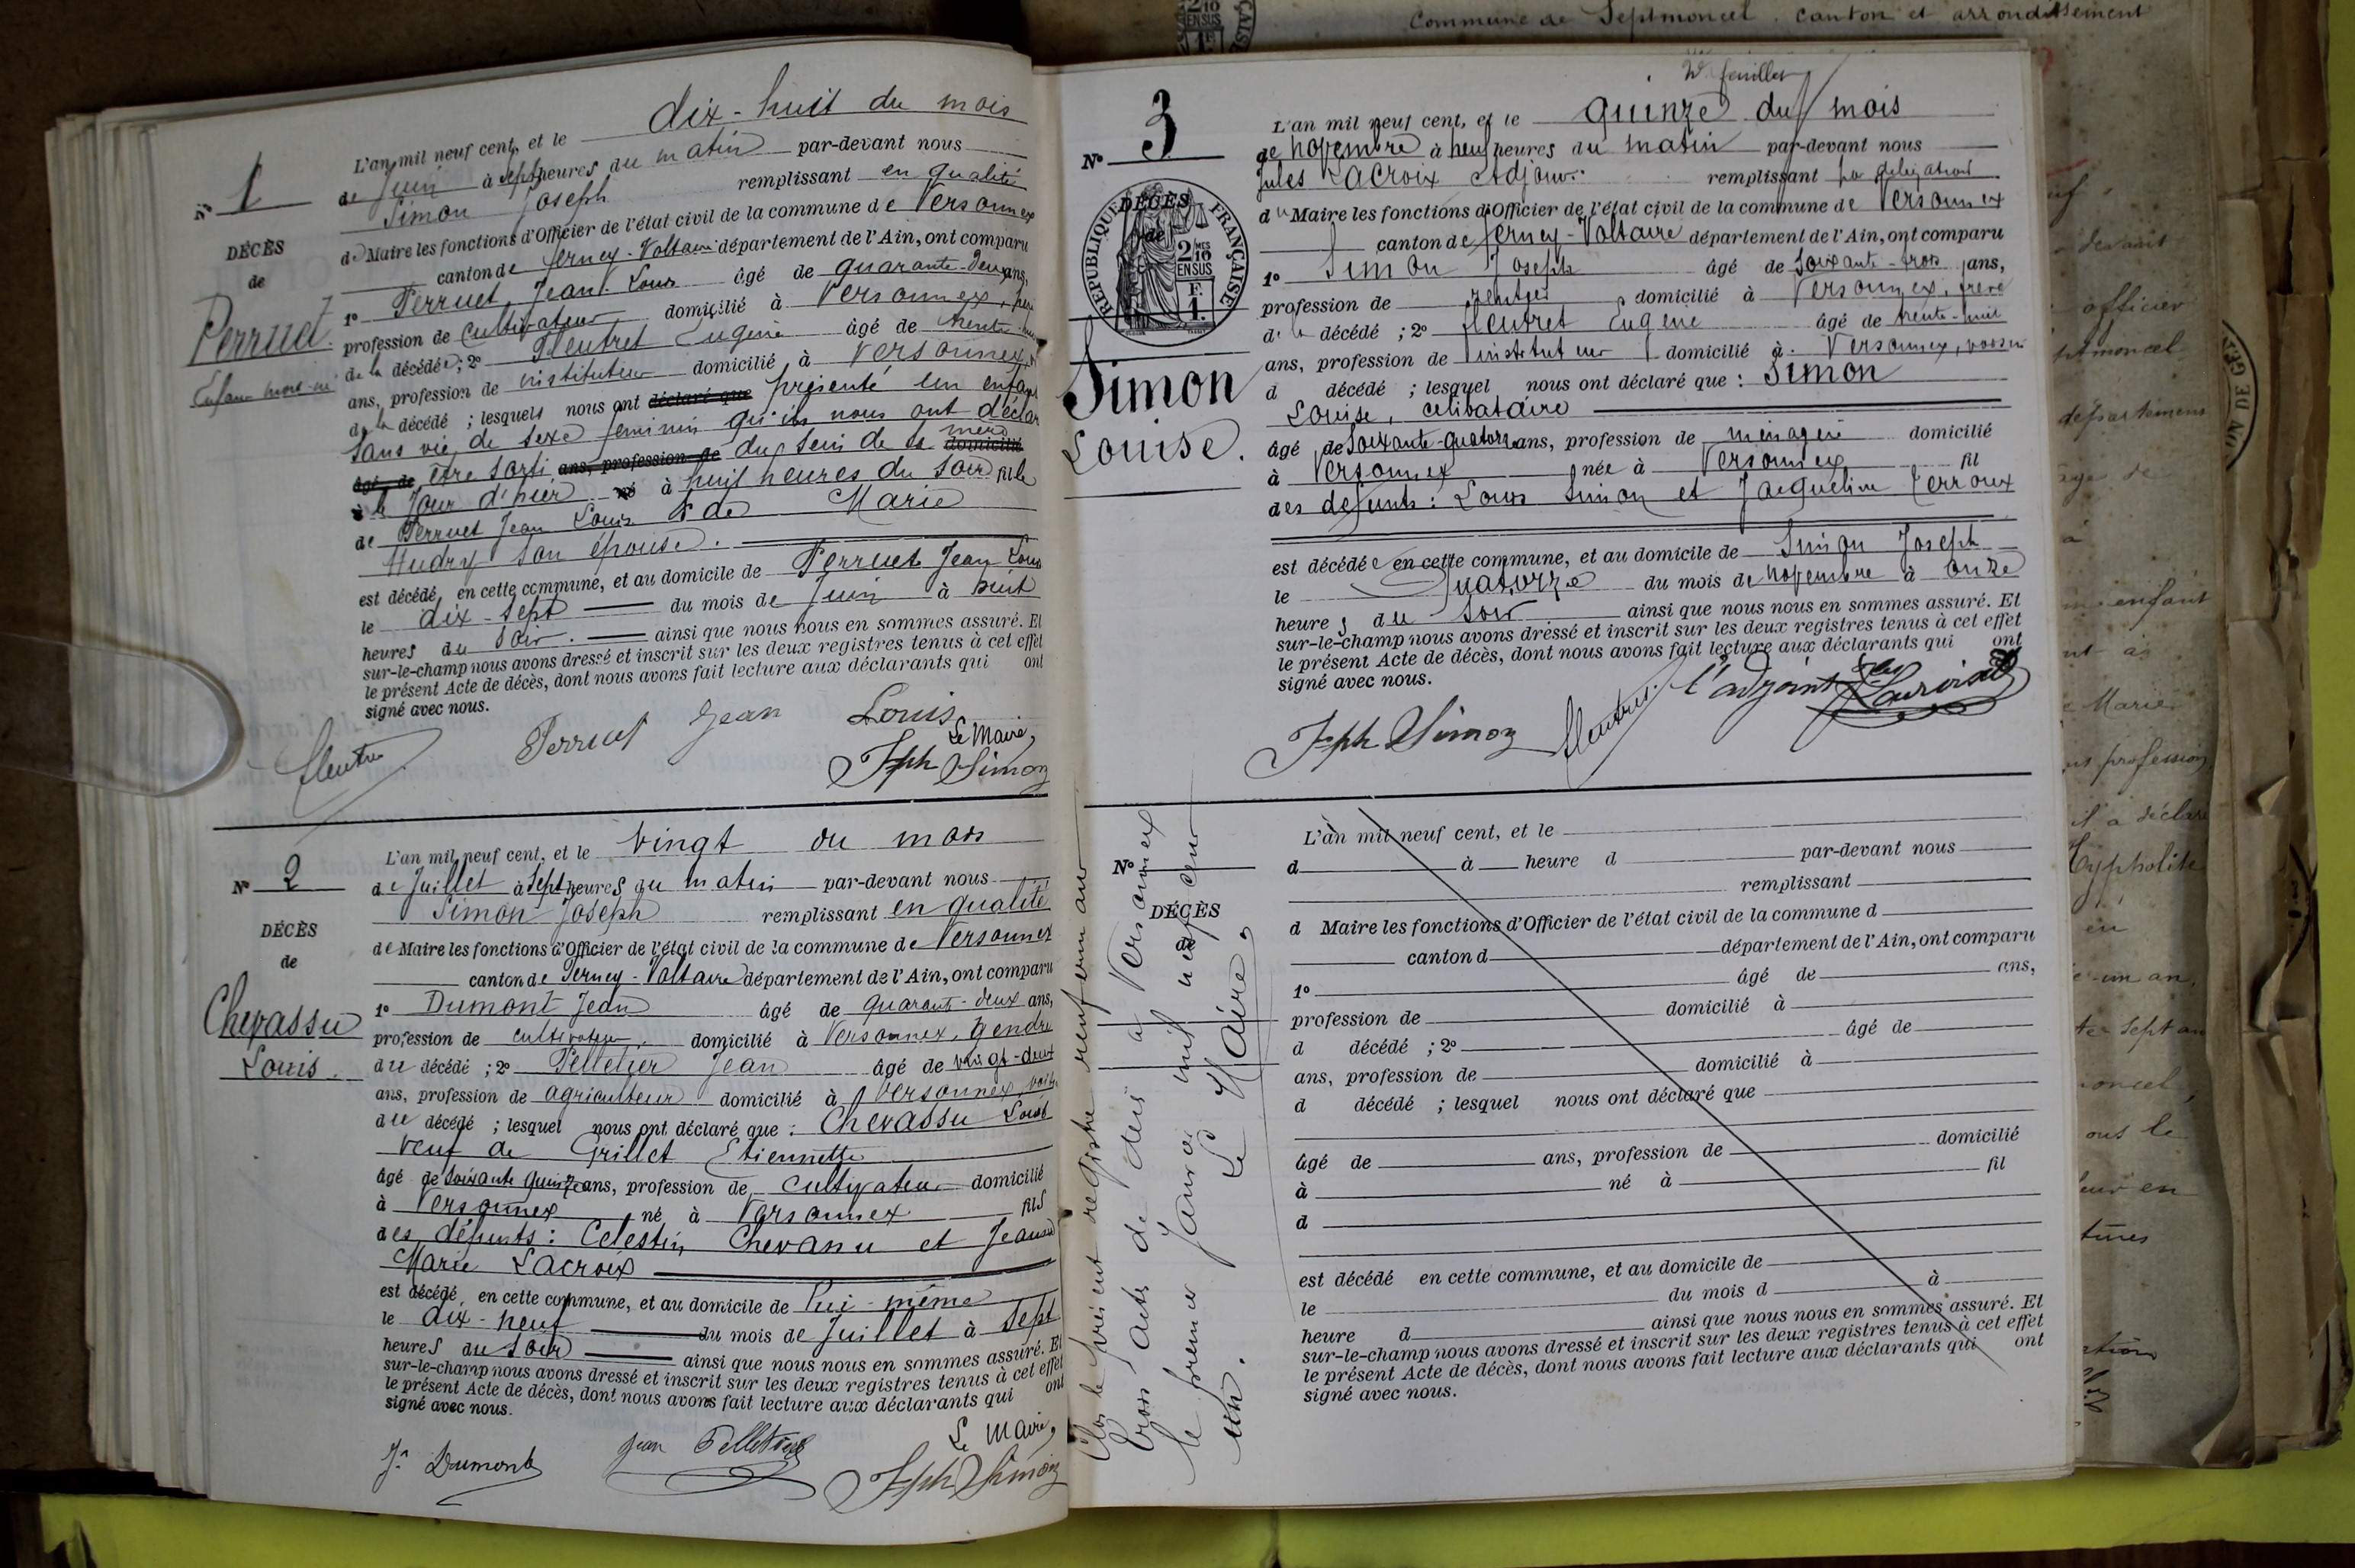 Commune de Septmoncel. Canton et arrondissement
1
N° 1
DÉCÈS
de
Perruet.
Enfant mort-né
L'an mil neuf cent, et le dix-huit du mois
de Juin à sept heures du matin par-devant nous
Simon Joseph remplissant en qualité
de Maire les fonctions d'Officier de l'état civil de la commune de Versonnex
canton de Ferney-Voltaire département de l'Ain, ont comparu
1° Perruet Jean Louis âgé de quarante-deux ans,
profession de cultivateur domicilié à Versonnex, père
de la décédée; 2° Fleutret Eugène âgé de trente-huit
ans, profession de instituteur domicilié à Versonnex,
de la décédé; lesquels nous ont déclaré que présenté un enfant
sans vie, de sexe féminin qu'ils nous ont déclaré
âgé de être sorti ans, profession de du sein de sa mère domicilié
à le jour d'hier né à huit heures du soir fille
de Perruet Jean Louis & de Marie
Audry son épouse.
est décédé, en cette commune, et au domicile de Perruet Jean Louis
le dix-sept du mois de Juin à huit
heures du soir. ainsi que nous nous en sommes assuré. Et
sur-le-champ nous avons dressé et inscrit sur les deux registres tenus à cet effet
le présent Acte de décès, dont nous avons fait lecture aux déclarants qui ont
signé avec nous.
Fleutret Perruet Jean Louis
Le Maire,
Jph Simon
N° 2
DÉCÈS
de
Chevassu
Louis.
L'an mil neuf cent, et le vingt du mois
de Juillet à sept heures du matin par-devant nous
Simon Joseph remplissant en qualité
de Maire les fonctions d'Officier de l'état civil de la commune de Versonnex
canton de Ferney-Voltaire département de l'Ain, ont comparu
1° Dumont Jean âgé de quarante-deux ans,
profession de cultivateur domicilié à Versonnex, gendre
du décédé; 2° Pelletier Jean âgé de vingt-deux
ans, profession de agriculteur domicilié à Versonnex, voisin
du décédé; lesquel nous ont déclaré que: Chevassu Louis
veuf de Grillet Etiennette
âgé de soixante quinze ans, profession de cultivateur domicilié
à Versonnex né à Versonnex fils
des défunts: Célestin Chevassu et Jeanne
Marie Lacroix
est décédé, en cette commune, et au domicile de lui-même
le dix-neuf du mois de Juillet à sept
heures du soir ainsi que nous nous en sommes assuré. Et
sur-le-champ nous avons dressé et inscrit sur les deux registres tenus à cet effet
le présent Acte de décès, dont nous avons fait lecture aux déclarants qui ont
signé avec nous.
Jn Dumont Jean Pelletier Le Maire,
Jph Simon
2e feuillet
N° 3
DÉCÈS
de
RÉPUBLIQUE FRANÇAISE
2 MES 10 EN SUS
F. 1.
Simon
Louise.
L'an mil neuf cent, et le quinze du mois
de novembre à neuf heures du matin par-devant nous
Jules Lacroix Adjoint remplissant par délégation
du Maire les fonctions d'Officier de l'état civil de la commune de Versonnex
canton de Ferney-Voltaire département de l'Ain, ont comparu
1° Simon Joseph âgé de soixante-trois ans,
profession de rentier domicilié à Versonnex, frère
de la décédé; 2° Fleutret Eugène âgé de trente-huit
ans, profession de instituteur domicilié à Versonnex, voisin
d décédé; lesquel nous ont déclaré que: Simon
Louise, célibataire
âgé de soixante-quatorze ans, profession de ménagère domicilié
à Versonnex née à Versonnex fil
des défunts: Louis Simon et Jacqueline Perroux
est décédée en cette commune, et au domicile de Simon Joseph
le quatorze du mois de novembre à onze
heures du soir ainsi que nous nous en sommes assuré. Et
sur-le-champ nous avons dressé et inscrit sur les deux registres tenus à cet effet
le présent Acte de décès, dont nous avons fait lecture aux déclarants qui ont
signé avec nous.
Jph Simon Fleutret l'adjoint Jles Lacroix
Clos le présent registre renfermant
trois actes de décès à Versonnex
le premier Janvier mil neuf cent
un. Le Maire,
N°
DÉCÈS
de
L'an mil neuf cent, et le
d à heure d par-devant nous
remplissant
d Maire les fonctions d'Officier de l'état civil de la commune d
canton d département de l'Ain, ont comparu
1° âgé de ans,
profession de domicilié à
d décédé; 2° âgé de
ans, profession de domicilié à
d décédé; lesquel nous ont déclaré que
âgé de ans, profession de domicilié
à né à fil
d
est décédé en cette commune, et au domicile de
le du mois d à
heure d ainsi que nous nous en sommes assuré. Et
sur-le-champ nous avons dressé et inscrit sur les deux registres tenus à cet effet
le présent Acte de décès, dont nous avons fait lecture aux déclarants qui ont
signé avec nous.
devant
officier
département
enfant
Marie
profession
il a déclaré
Hyppolite
un an,
sept an